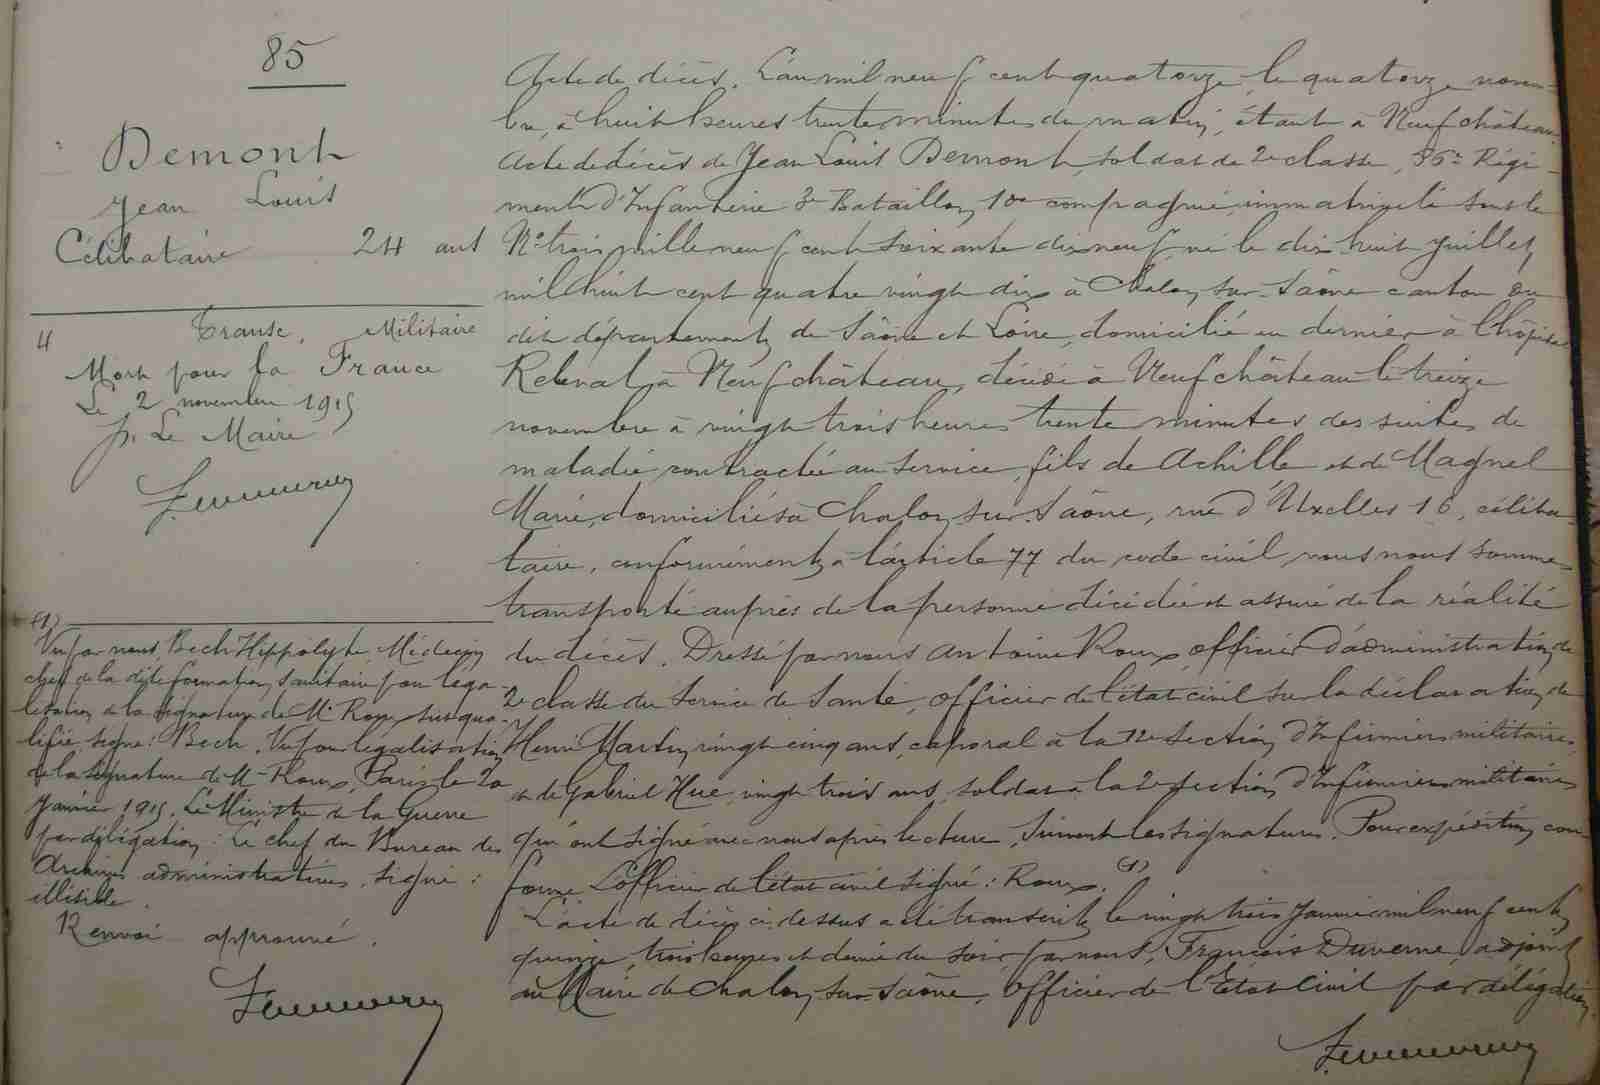 85
Demont
Jean Louis
Célibataire 24 ans
4 Transc. Militaire
Mort pour la France
Le 2 novembre 1915
p. Le Maire
(1)
Vu par nous Bech Hippolyte, Médecin
chef de la dite formation sanitaire pour léga-
lisation de la signature de Mr Roux, susqua-
lifié, signé : Bech. Vu pour légalisation
de la signature de Mr Roux, Paris, le 20
Janvier 1915. Le Ministre de la Guerre
par délégation : Le chef du Bureau des
Archives administratives, signé :
illisible.
Renvoi approuvé.
Acte de décès. L'an mil neuf cent quatorze, le quatorze novem-
bre, à huit heures trente minutes du matin, étant à Neufchâteau
Acte de décès de Jean Louis Demont, soldat de 2e classe, 56e Régi-
ment d'Infanterie 3e Bataillon, 10e compagnie, immatriculé sous le
No trois mille neuf cent soixante dix neuf, né le dix huit Juillet,
mil huit cent quatre vingt dix à Chalon sur Saône canton du
dit département de Saône et Loire, domicilié en dernier à l'hôpital
Rebeval à Neufchâteau, décédé à Neufchâteau le treize
novembre à vingt trois heures trente minutes des suites de
maladie contractée au service, fils de Achille et de Magnel
Marie, domiciliés à Chalon sur Saône, rue d'Uxelles 16, céliba-
taire, conformément à l'article 77 du code civil, nous nous sommes
transporté auprès de la personne décédée et assuré de la réalité
du décès. Dressé par nous Antoine Roux, officier d'administration de
2e classe du Service de Santé, officier de l'état civil sur la déclaration de
Henri Martin, vingt cinq ans, caporal à la 12e section d'Infirmiers militaires
et de Gabriel Hue, vingt trois ans, soldat à la 2e section d'Infirmiers militaires
qui ont signé avec nous après lecture. Suivent les signatures. Pour expédition con-
forme L'officier de l'état civil signé : Roux. (1)
L'acte de décès ci-dessus a été transcrit le vingt trois Janvier mil neuf cent
quinze, trois heures et demie du soir, par nous, François Duverne, adjoint
au Maire de Chalon sur Saône, officier de l'Etat Civil par délégation.